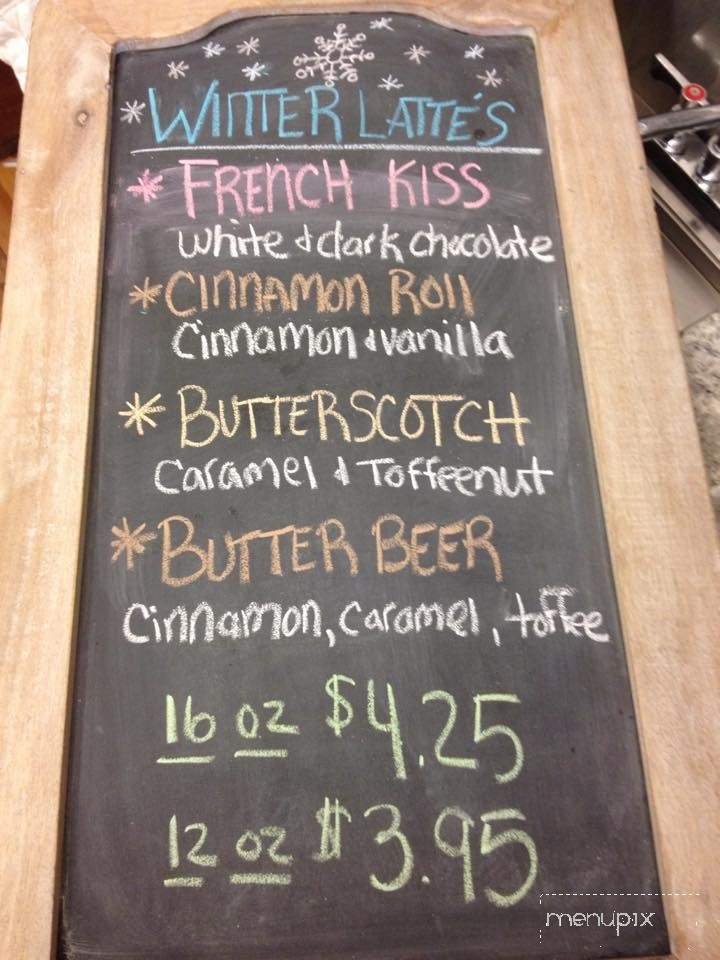 WINTER LATTE'S
* FRENCH KISS
White & dark chocolate
* CINNAMON ROll
Cinnamon & vanilla
* BUTTERSCOTCH
Caramel & Toffeenut
* BUTTER BEER
Cinnamon, caramel, toffee
16 oz $4.25
12 oz $3.95
menupix